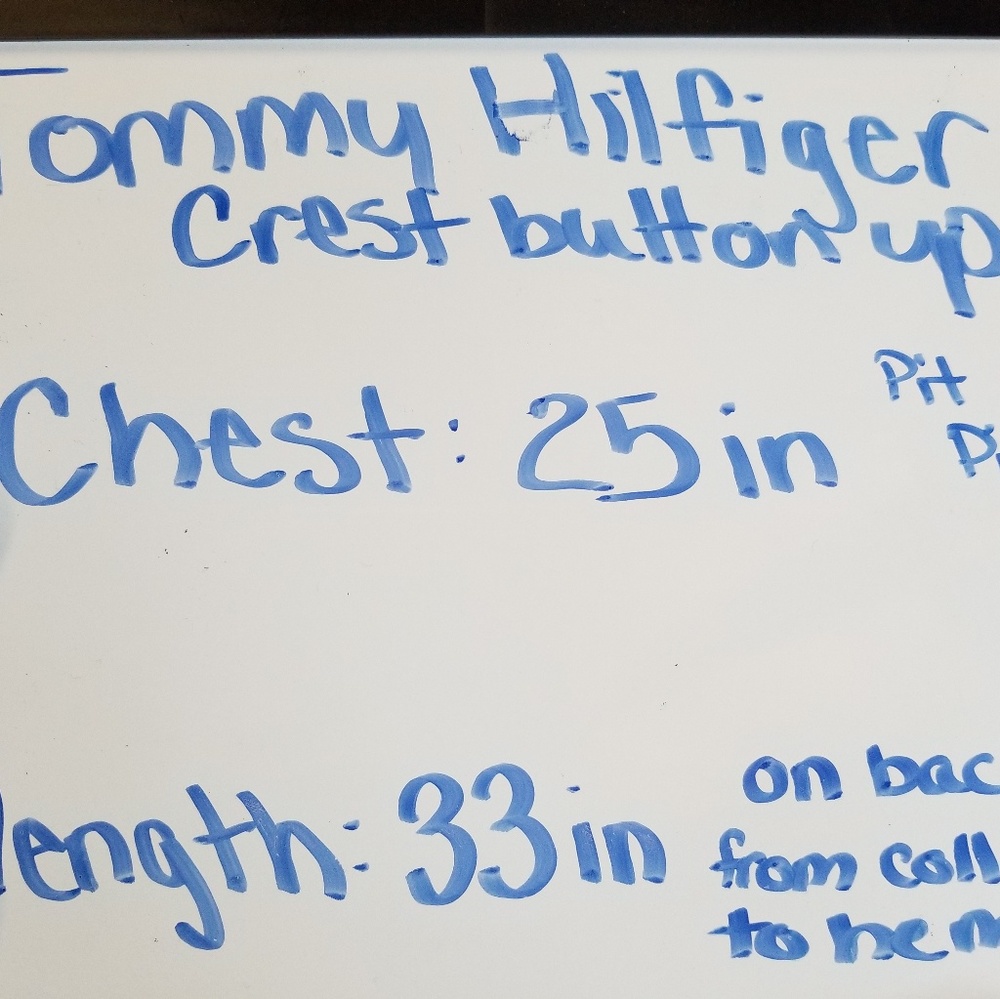 Tommy Hilfiger
Crest button up
Chest: 25 in
Pit
length: 33 in
on bac
from coll
to hem